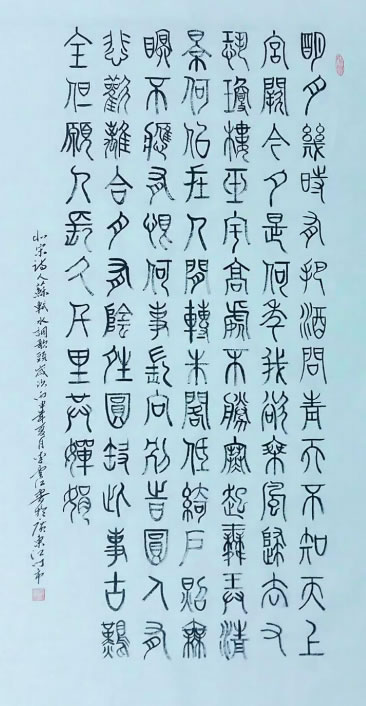 明月幾時有把酒問青天不知天上
宮闕今夕是何年我欲乘風歸去又
恐瓊樓玉宇高處不勝寒起舞弄清
景何似在人間轉朱閣低綺戶照無
眠不應有恨何事長向別旹圓人有
悲歡離合月有陰晴圓缺此事古難
全但願人長久千里共嬋娟
北宋詩人蘇軾水調歌頭歲次丙申年夏月雲江書於廣東江门市